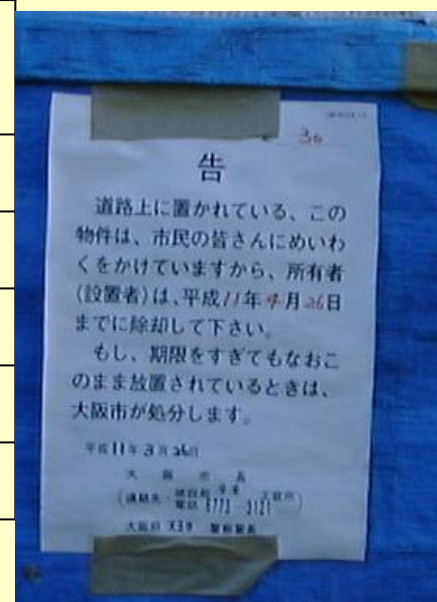 30
告
道路上に置かれている、この
物件は、市民の皆さんにめいわ
くをかけていますから、所有者
(設置者)は、平成11年4月26日
までに除却して下さい。
もし、期限をすぎてもなおこ
のまま放置されているときは、
大阪市が処分します。
平成11年3月26日
大阪市長
(連絡先
電話
大阪府 天王寺 警察署長